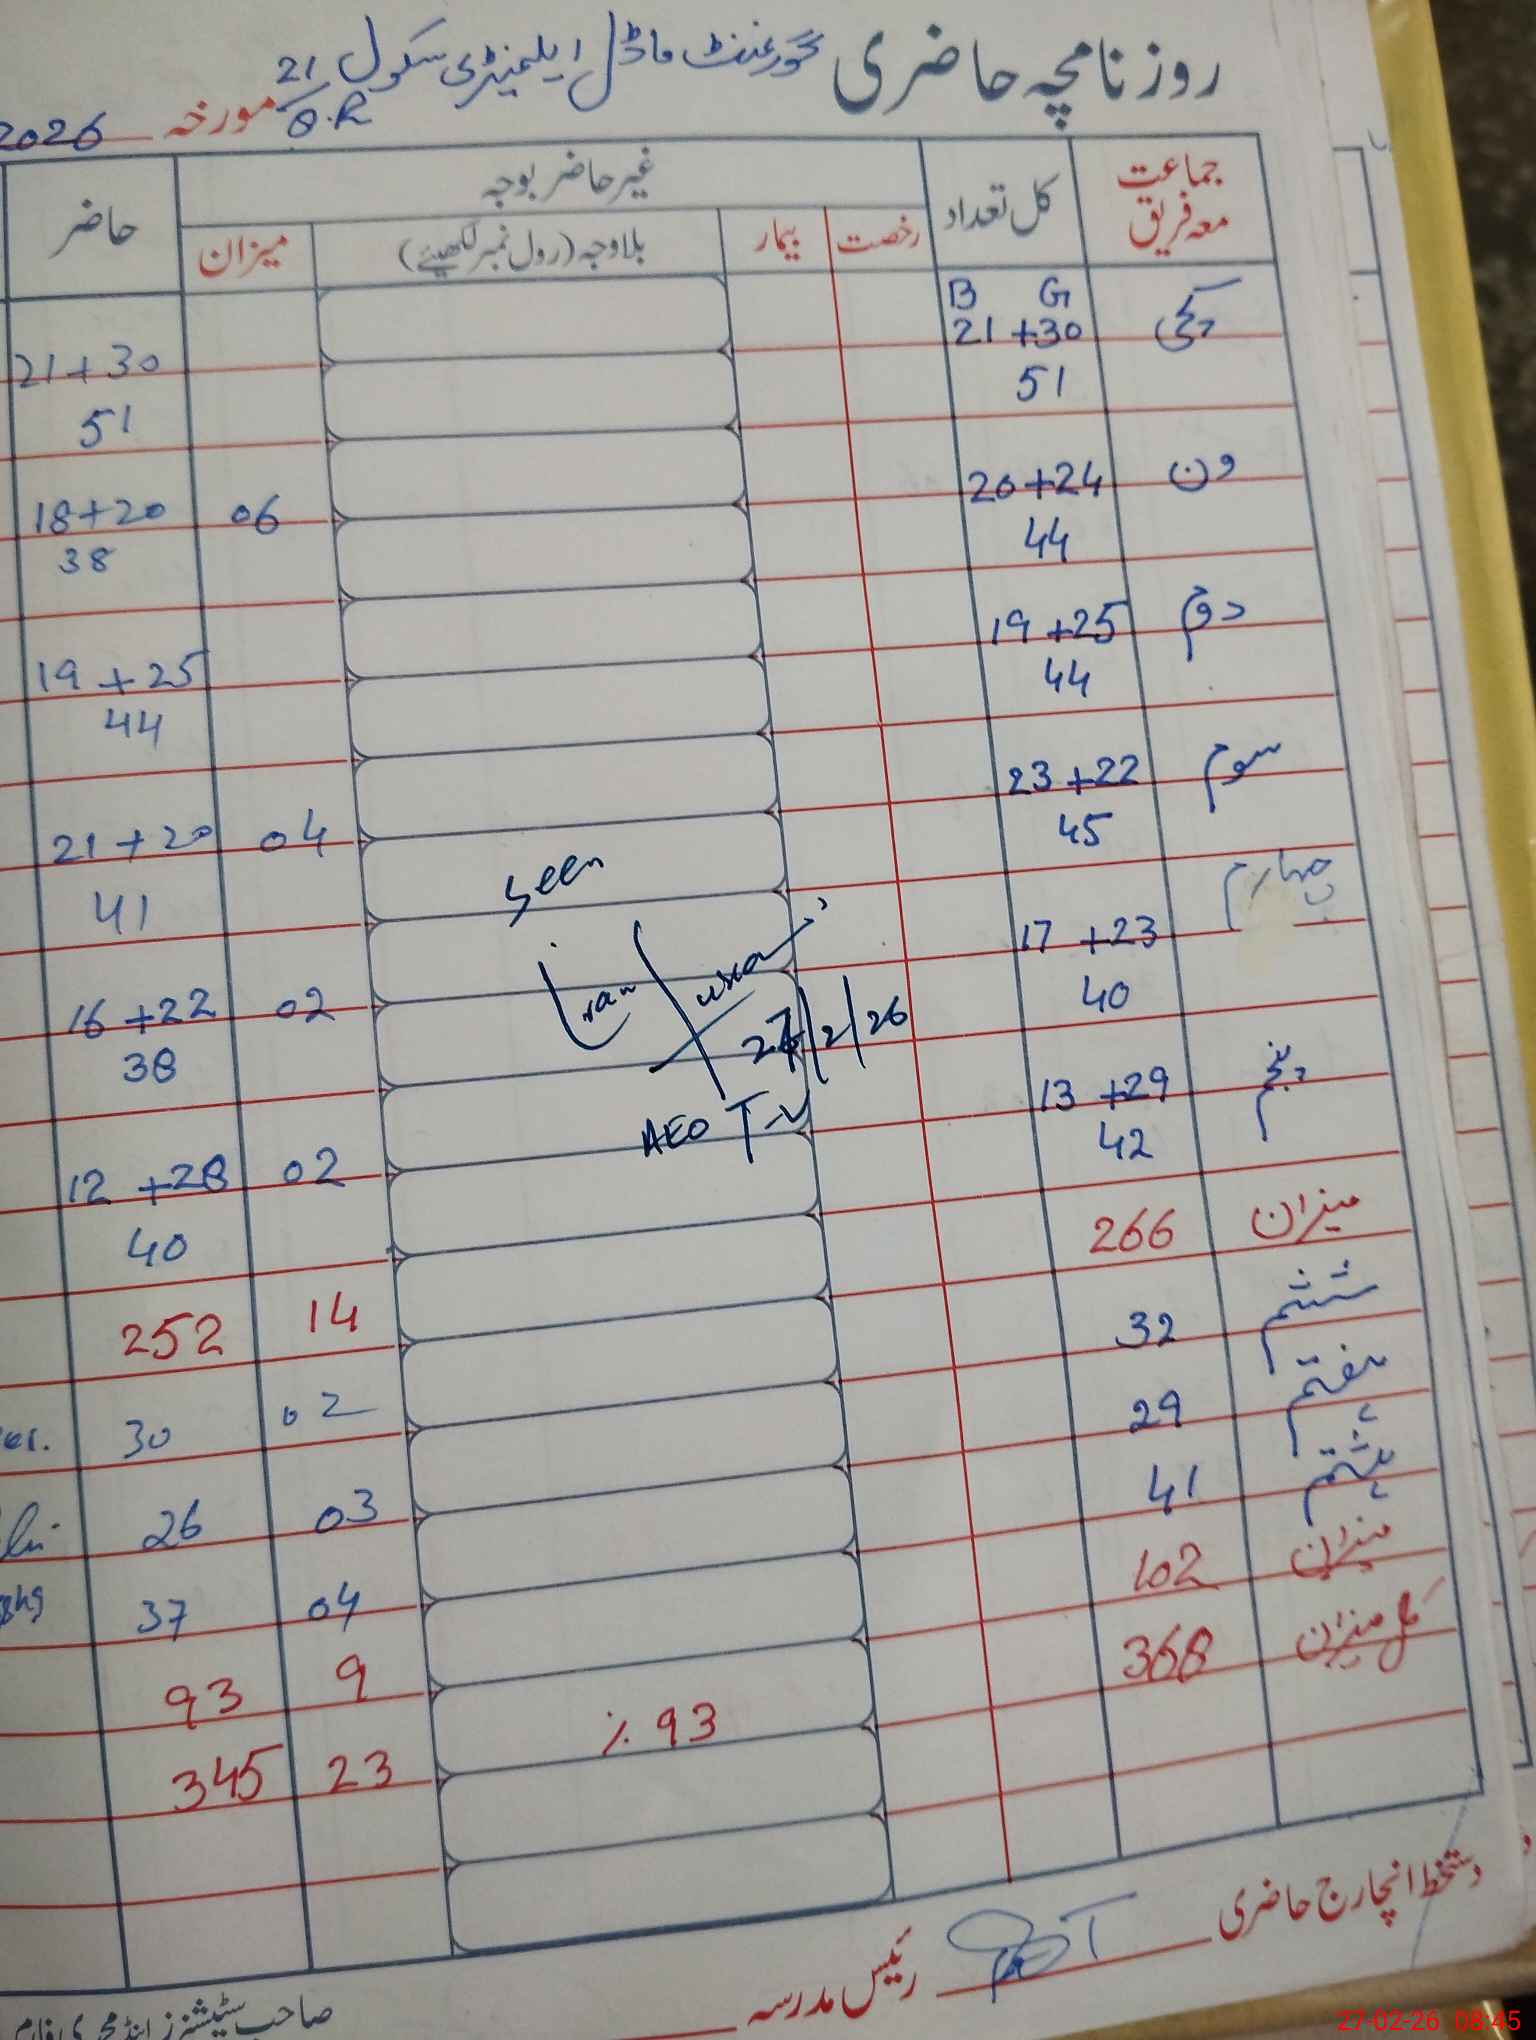 روزنامچہ حاضری گورنمنٹ ماڈل ایلیمنٹری سکول 21
G.R
مورخہ 2026
جماعت معہ فریق کل تعداد غیر حاضر بوجہ حاضر
رخصت بیمار بلاوجہ (رول نمبر لکھیئے) میزان
B G
کچی 21+30 21+30
51 51
ون 20+24 06 18+20
44 38
دوم 19+25 19+25
44 44
سوم 23+22 04 21+20
45 41
چہارم 17+23 02 16+22
40 38
پنجم 13+29 02 12+28
42 40
seen
27/2/26
AEO
میزان 266 14 252
ششم 32 02 30
ہفتم 29 03 26
ہشتم 41 04 37
میزان 102 9 93
کل میزان 368 ٪93 23 345
دستخط انچارج حاضری رئیس مدرسہ
صاحب سٹیشنرز اینڈ
27-02-26 08:45